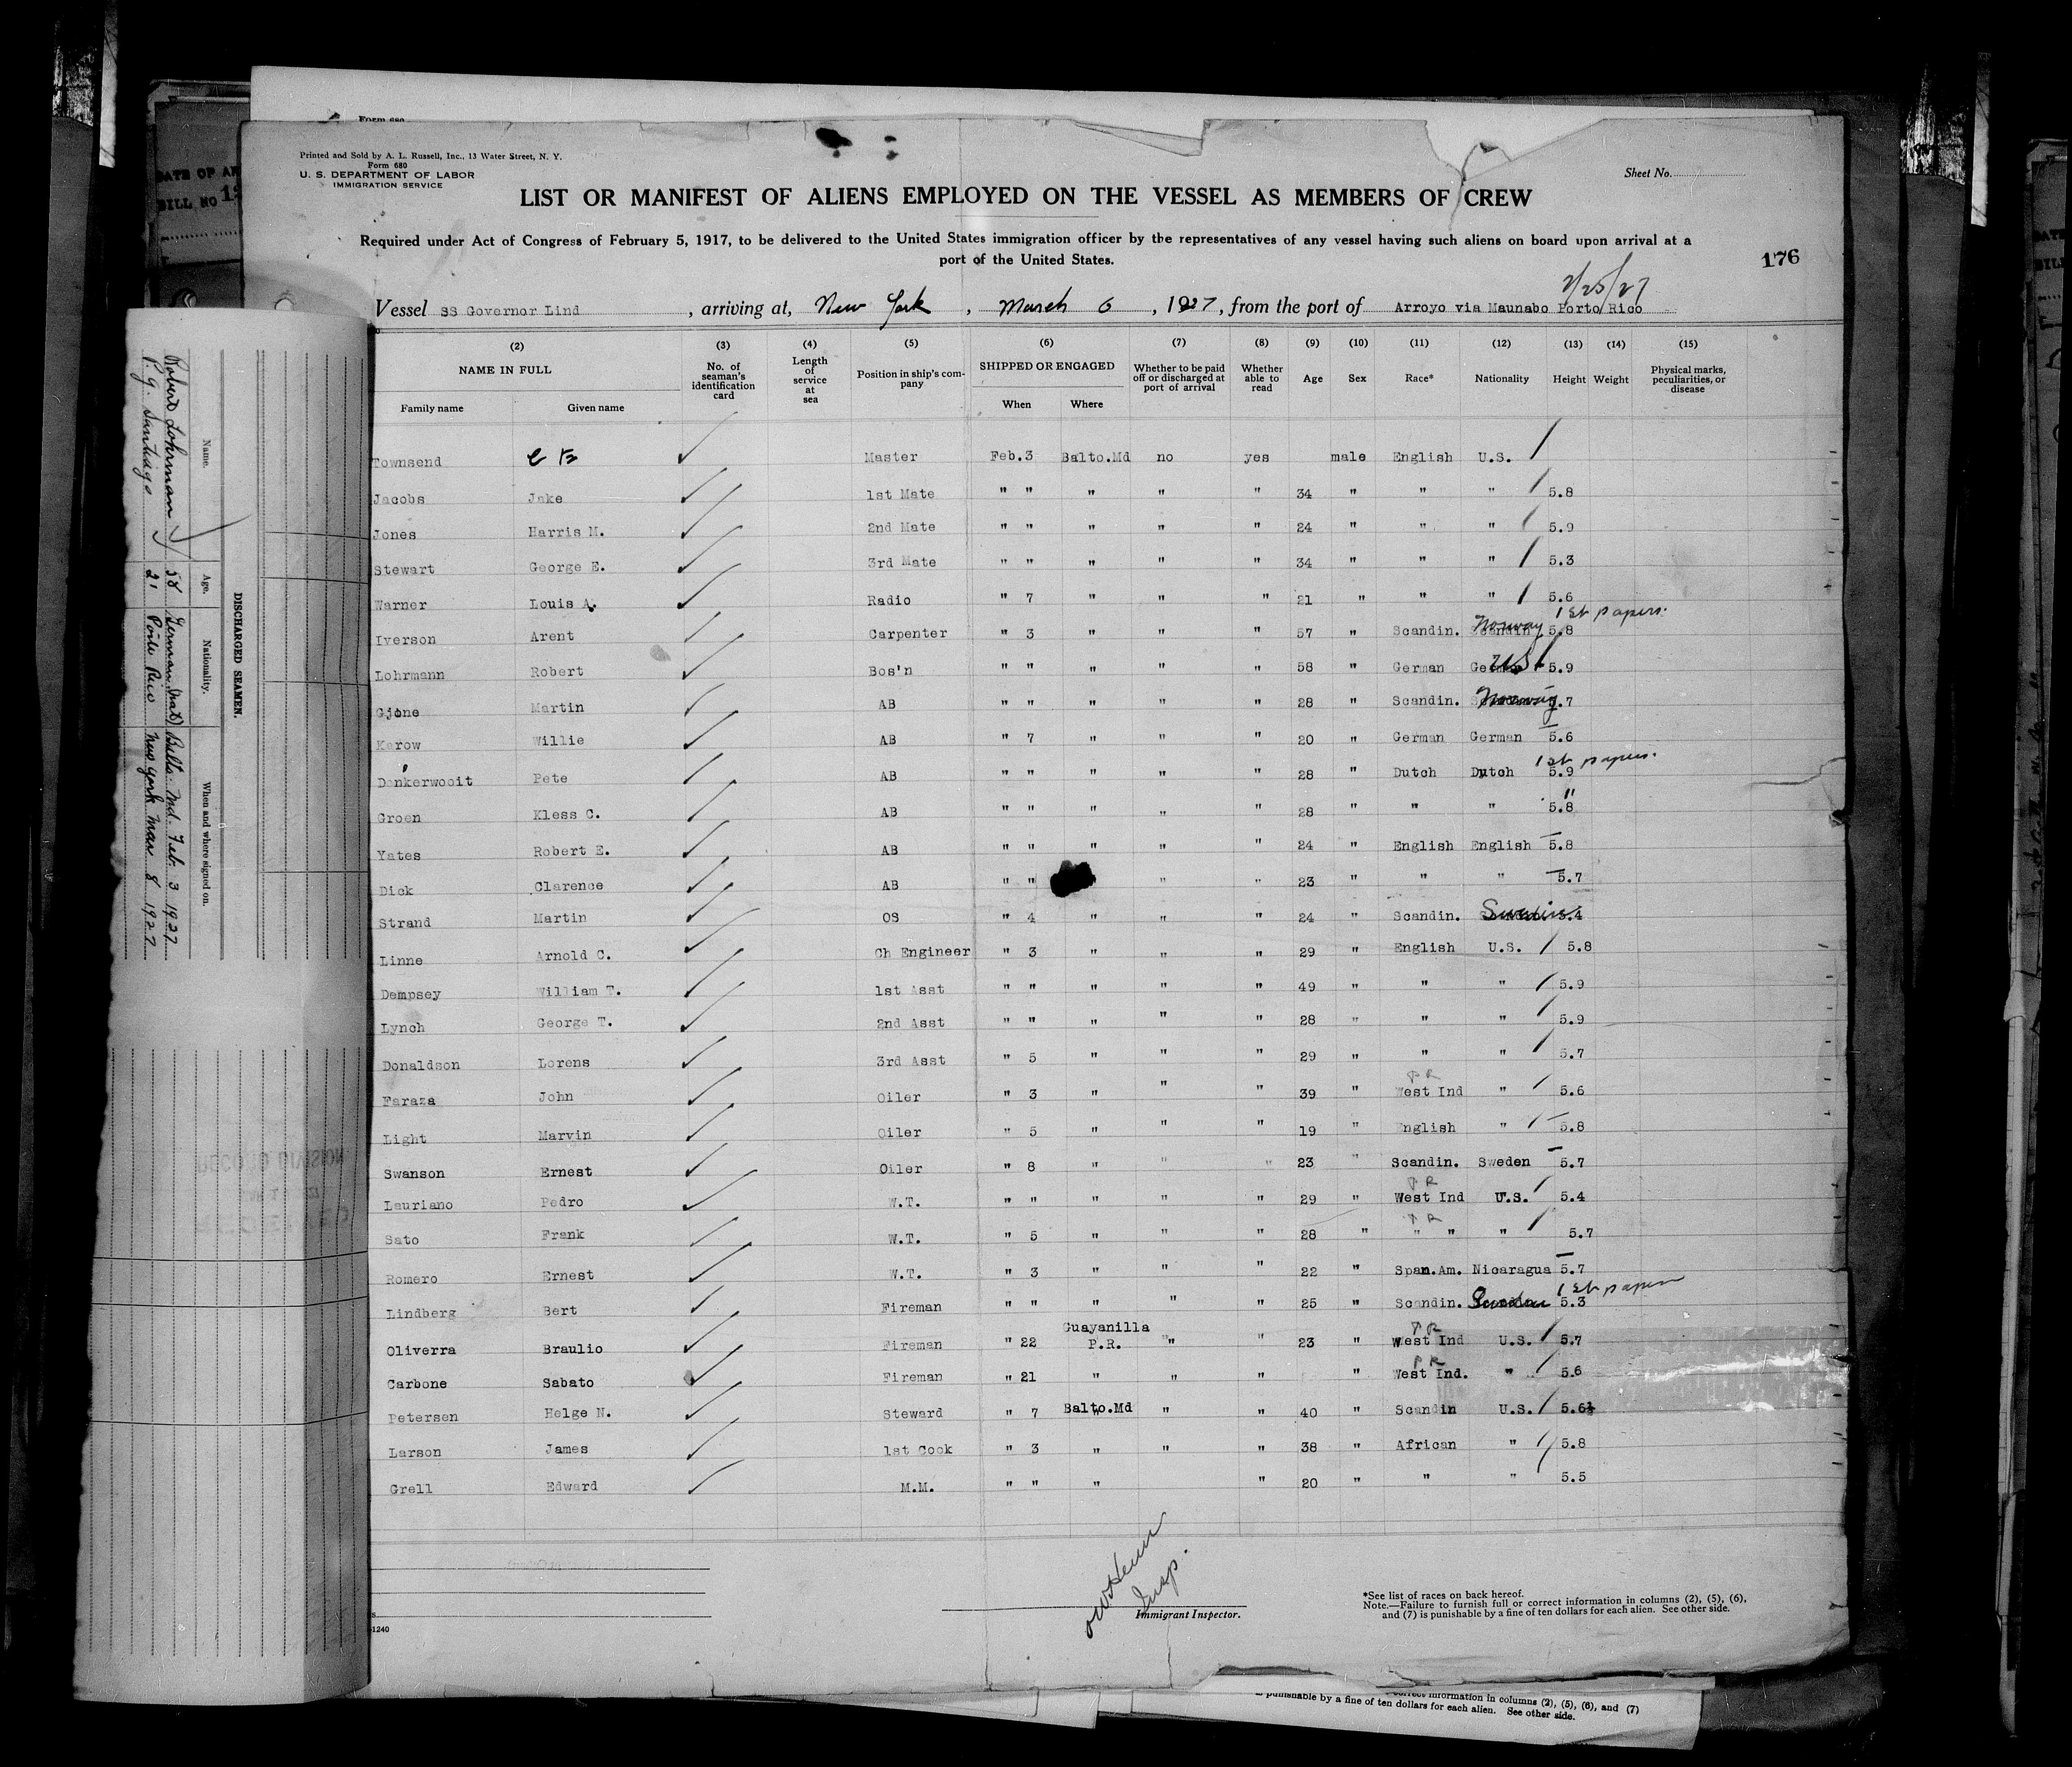 Form 680
DATE OF AR
BILL NO 1
Printed and Sold by A. L. Russell, Inc., 13 Water Street, N. Y.
Form 680
U. S. DEPARTMENT OF LABOR
IMMIGRATION SERVICE
Sheet No.
LIST OR MANIFEST OF ALIENS EMPLOYED ON THE VESSEL AS MEMBERS OF CREW
Required under Act of Congress of February 5, 1917, to be delivered to the United States immigration officer by the representatives of any vessel having such aliens on board upon arrival at a
port of the United States.
176
2/25/27
Vessel SS Governor Lind, arriving at, New York, March 6, 1927, from the port of Arroyo via Maunabo Porto Rico
(2) (3) (4) (5) (6) (7) (8) (9) (10) (11) (12) (13) (14) (15)
NAME IN FULL No. of seaman's identification card Length of service at sea Position in ship's company SHIPPED OR ENGAGED Whether to be paid off or discharged at port of arrival Whether able to read Age Sex Race* Nationality Height Weight Physical marks, peculiarities, or disease
Family name Given name When Where
Townsend C E Master Feb.3 Balto.Md no yes male English U.S.
Jacobs Jake 1st Mate " " " " " 34 " " " 5.8
Jones Harris M. 2nd Mate " " " " " 24 " " " 5.9
Stewart George E. 3rd Mate " " " " " 34 " " " 5.3
Warner Louis A. Radio " 7 " " " 21 " " " 5.6
1st papers.
Iverson Arent Carpenter " 3 " " " 57 " Scandin. Norway 5.8
Lohrmann Robert Bos'n " " " " " 58 " German US 5.9
Gjone Martin AB " " " " " 28 " Scandin. Norway .7
Karow Willie AB " 7 " " " 20 " German German 5.6
1st papers.
Donkerwooit Pete AB " " " " " 28 " Dutch Dutch 5.9
Groen Kless C. AB " " " " " 28 " " " 5.8 "
Yates Robert E. AB " " " " " 24 " English English 5.8
Dick Clarence AB " " " " 23 " " " 5.7
Strand Martin OS " 4 " " " 24 " Scandin. Sweden 5.4
Linne Arnold C. Ch Engineer " 3 " " " 29 " English U.S. 5.8
Dempsey William T. 1st Asst " " " " " 49 " " " 5.9
Lynch George T. 2nd Asst " " " " " 28 " " " 5.9
Donaldson Lorens 3rd Asst " 5 " " " 29 " " " 5.7
P R
Faraza John Oiler " 3 " " " 39 " West Ind " 5.6
Light Marvin Oiler " 5 " " " 19 " English " 5.8
Swanson Ernest Oiler " 8 " " " 23 " Scandin. Sweden 5.7
P R
Lauriano Pedro W.T. " " " " " 29 " West Ind U.S. 5.4
P R
Sato Frank W.T. " 5 " " " 28 " " " " 5.7
Romero Ernest W.T. " 3 " " " 22 " Span.Am. Nicaragua 5.7
1st papers
Lindberg Bert Fireman " " " " " 25 " Scandin. Sweden 5.3
P R
Oliverra Braulio Fireman " 22 Guayanilla P.R. " " 23 " West Ind U.S. 5.7
P R
Carbone Sabato Fireman " 21 " " " " West Ind. " 5.6
Petersen Helge N. Steward " 7 Balto.Md " " 40 " Scandin U.S. 5.6½
Larson James 1st Cook " 3 " " " 38 " African " 5.8
Grell Edward M.M. " " " " 20 " " " 5.5
Insp.
Immigrant Inspector.
*See list of races on back hereof.
Note.—Failure to furnish full or correct information in columns (2), (5), (6),
and (7) is punishable by a fine of ten dollars for each alien. See other side.
1240
DISCHARGED SEAMEN.
Name. Age. Nationality. When and where signed on.
Robert Lohrman 58 German (nat) Balto. Md. Feb. 3 1927
P. G. Santiago 21 Porto Rico New York Mar 8 1927
correct information in columns (2), (5), (6), and (7)
punishable by a fine of ten dollars for each alien. See other side.